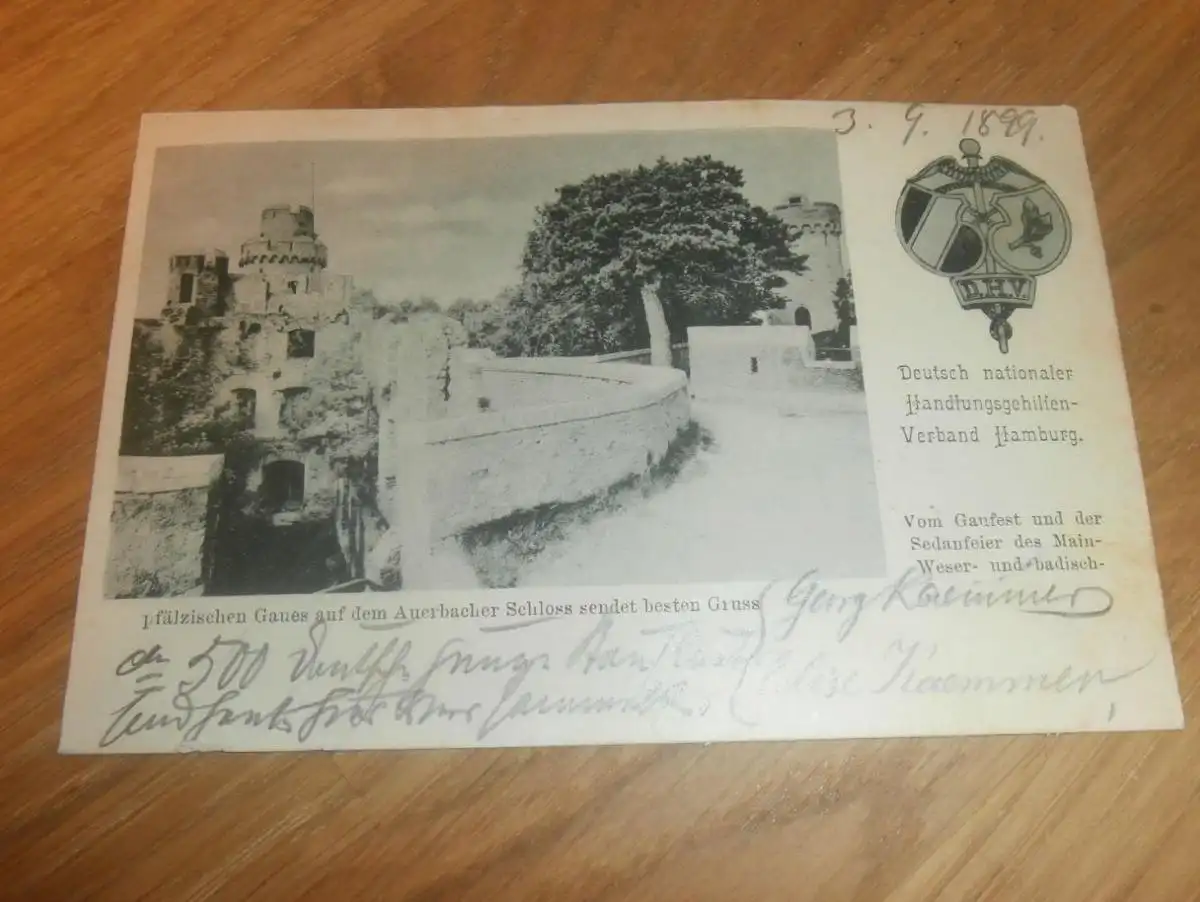 3. 9. 1899.
D.H.V.
Deutsch nationaler
Handlungsgehilfen-
Verband Hamburg.
Vom Gaufest und der
Sedanfeier des Main-
Weser- und badisch-
pfälzischen Gaues auf dem Auerbacher Schloss sendet besten Gruss
Georg Kaemmer
500 Deutsch
sind heute hier
Elise Kaemmer